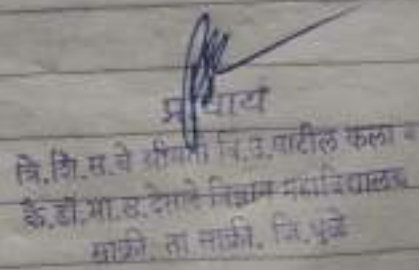 प्राचार्य
वि.शि.स.चे श्रीमती वि.उ.पाटील कला व
कै.डॉ.भा.स.देसले विज्ञान महाविद्यालय
साक्री. ता साक्री. जि.धुळे